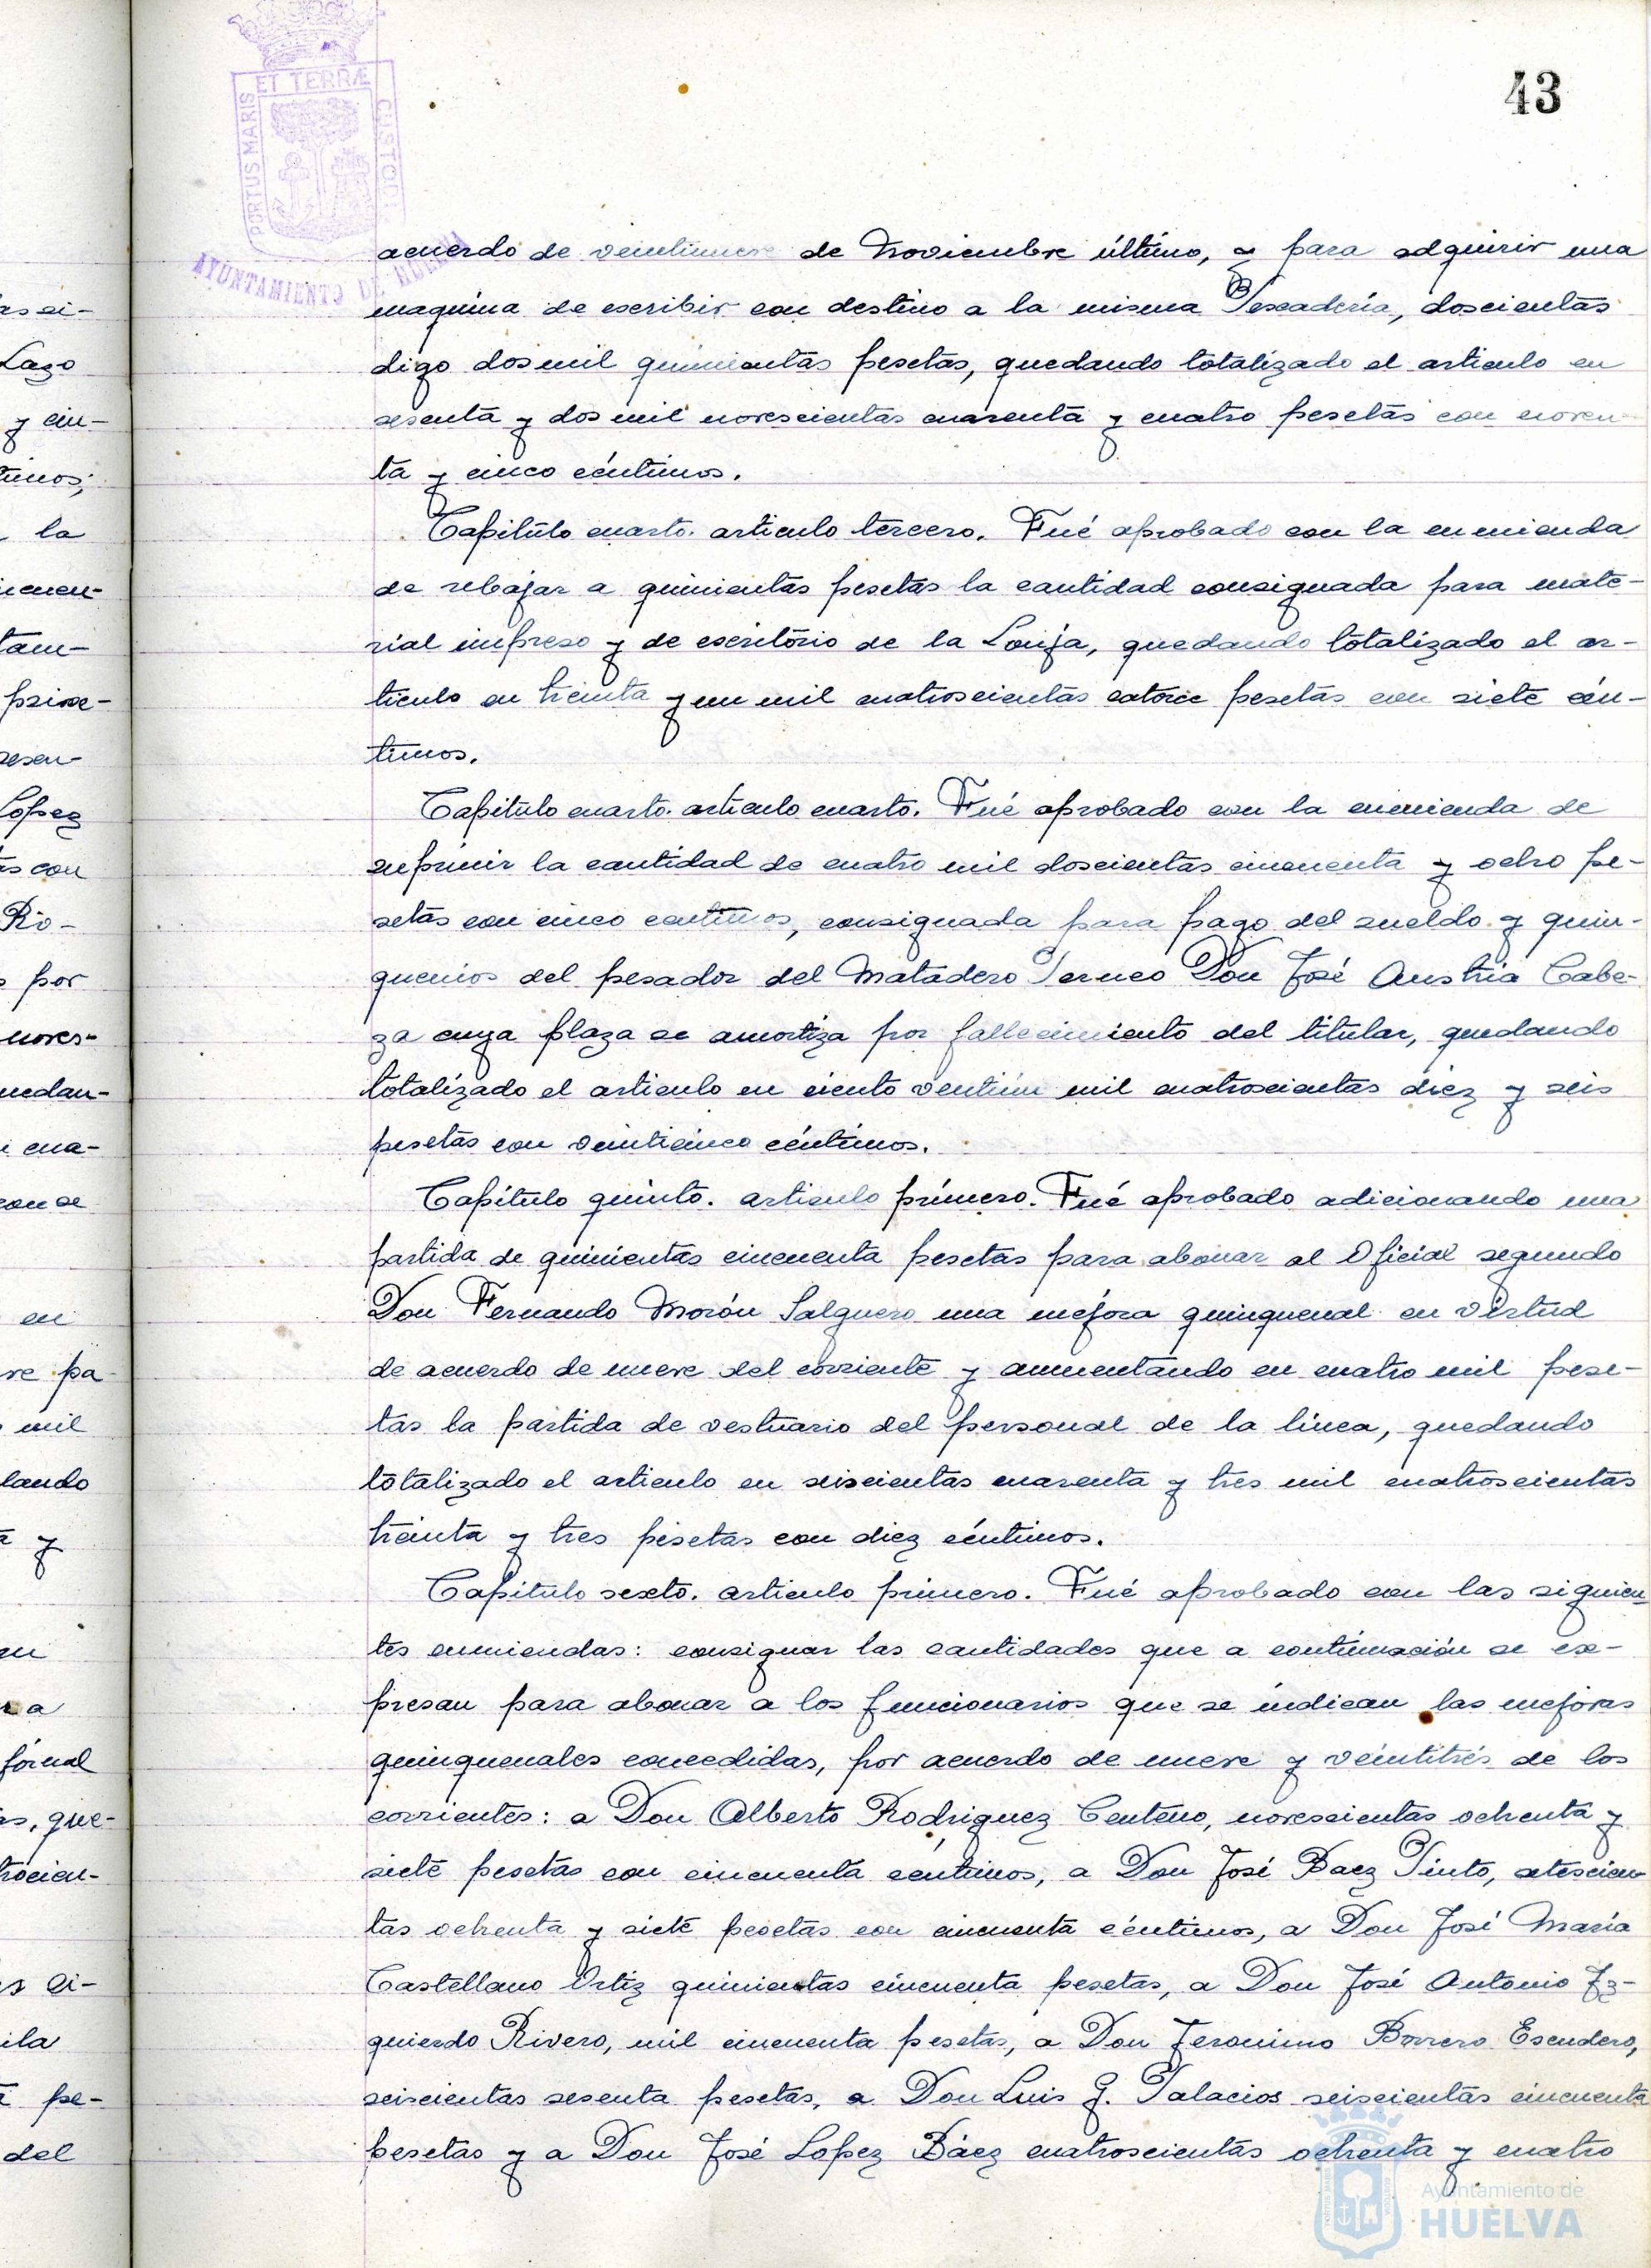 43
PORTUS MARIS ET TERRÆ CUSTODIA
AYUNTAMIENTO DE HUELVA
acuerdo de veintinueve de Noviembre último, y para adquirir una
maquina de escribir con destino a la misma Pescadería, doscientas
digo dos mil quinientas pesetas, quedando totalizado el articulo en
sesenta y dos mil novescientas cuarenta y cuatro pesetas con noven-
ta y cinco céntimos.
Capítulo cuarto. articulo tercero. Fué aprobado con la enmienda
de rebajar a quinientas pesetas la cantidad consignada para mate-
rial impreso y de escritorio de la Lonja, quedando totalizado el ar-
ticulo en treinta y un mil cuatroscientas catorce pesetas con siete cén-
timos.
Capitulo cuarto. articulo cuarto. Fué aprobado con la enmienda de
suprimir la cantidad de cuatro mil doscientas cincuenta y ocho pe-
setas con cinco centimos, consignada para pago del sueldo y quin-
quenios del pesador del Matadero Perneo Don José Austria Cabe-
za cuya plaza se amortiza por fallecimiento del titular, quedando
totalizado el articulo en ciento ventiún mil cuatroscientas diez y seis
pesetas con veinticinco céntimos.
Capítulo quinto. articulo primero. Fué aprobado adicionando una
partida de quinientas cincuenta pesetas para abonar al Oficial segundo
Don Fernando Morón Salguero una mejora quinquenal en virtud
de acuerdo de nueve del corriente y aumentando en cuatro mil pese-
tas la partida de vestuario del personal de la línea, quedando
totalizado el articulo en seiscientas cuarenta y tres mil cuatroscientas
treinta y tres pesetas con diez céntimos.
Capitulo sexto. articulo primero. Fué aprobado con las siguien-
tes enmiendas: consignar las cantidades que a continuación se ex-
presan para abonar a los funcionarios que se indican las mejoras
quinquenales concedidas, por acuerdo de nueve y veintitrés de los
corrientes: a Don Alberto Rodriguez Centeno, novescientas ochenta y
siete pesetas con cincuenta céntimos, a Don José Baez Pinto, setescien-
tas ochenta y siete pesetas con cincuenta céntimos, a Don José María
Castellano Ortiz quinientas cincuenta pesetas, a Don José Antonio Iz-
quierdo Rivero, mil cincuenta pesetas, a Don Jeronimo Borrero Escudero,
seiscientas sesenta pesetas, a Don Luis G. Palacios seiscientas cincuenta
pesetas y a Don José Lopez Báez cuatroscientas ochenta y cuatro
Ayuntamiento de
HUELVA